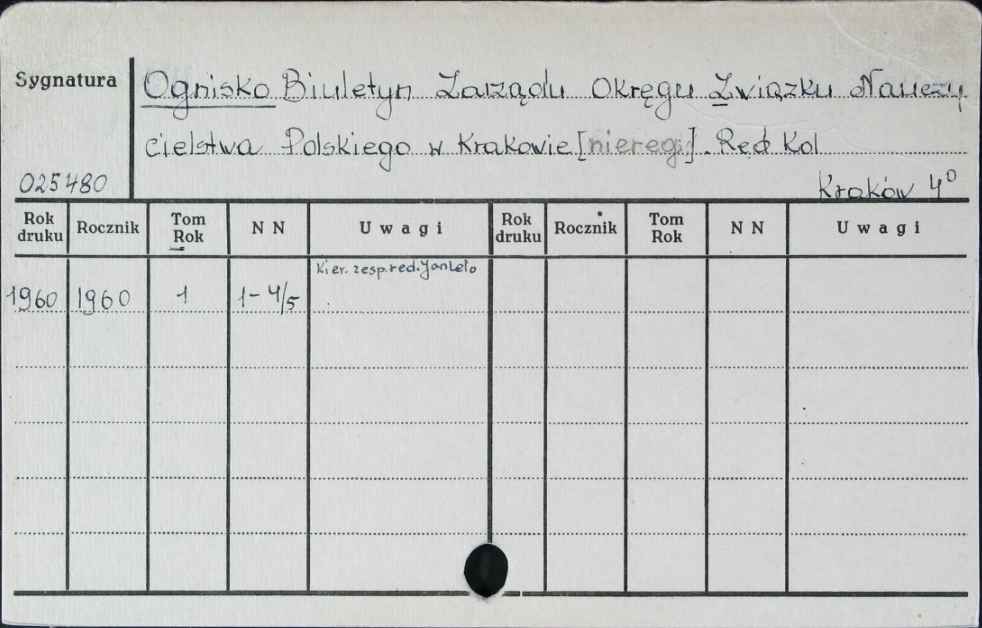 Sygnatura
Ognisko Biuletyn Zarządu Okręgu Związku Nauczy
cielstwa Polskiego w Krakowie [niereg.]. Red Kol
025480
Kraków 4°
Rok druku Rocznik Tom Rok N N Uwagi Rok druku Rocznik Tom Rok N N Uwagi
Kier. zesp. red. Jan
1960 1960 1 1-4/5